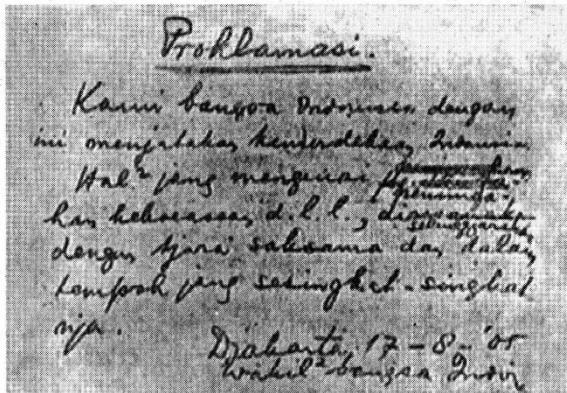 Proklamasi.
Kami bangsa Indonesia dengan
ini menjatakan kemerdekaan Indonesia
Hal² jang mengenai
pemindahan
kekoeasaan d.l.l., diselenggarakan
dengan tjara saksama dan dalam
tempoh jang sesingkat-singkat
nja.
Djakarta 17-8-'05
Wakil² bangsa Indon.